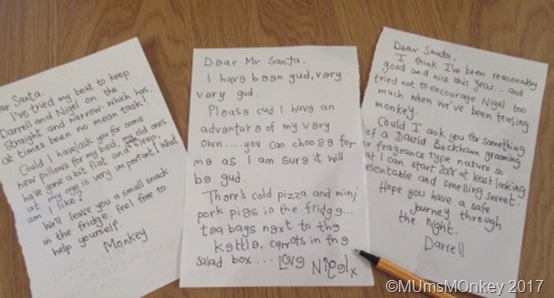 ar Santa.
I've tried my best to keep
Darrell and Nigel on the
straight and narrow which has
at times been no mean task!
Could I have/ask you for some
new pillows for my bed, my old ones
have gone a bit flat and sleep,
at my age is very important! What
am I like?
We'll leave you a small snack
in the fridge, feel free to
help yourself.
Monkey
Dear Mr Santa.
I have been gud, very
very gud.
Please cud I have an
adventure of my very
own... you can choose for
me as I am sure it will
be gud.
There's cold pizza and mini
pork pies in the fridge...
tea bags next to the
kettle, carrots in the
salad box... Love Nigel x
Dear Santa.
I think I've been reasonably
good and nice this year... and
tried not to encourage Nigel too
much when we've been teasing
monkey.
Could I ask you for something
of a David Beckham grooming
or fragrance type nature so
at I can start 2018 at least looking
resentable and smelling sweet.
Hope you have a safe
journey through
the night.
Darrell
©MUmsMOnkey 2017